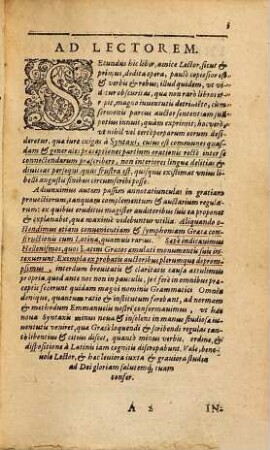 AD LECTOREM.
SEcundus hic liber, amice Lector, sicut &
primus, dedita opera, paulò copiosior est
& verbis & rebus; illud quidem, vt vi-
tetur obscuritas, qua non rarò libros ter-
it, magno iuuentutis detrimēto, cùm
sermonis parcus auctor sententiam suā
potius innuit, quàm exprimit: hoc verò,
vt nihil vel cerebperparum eorum desi-
deretur, quæ iure exigas à Syntaxi, cuius est communes quas-
dam & generales præceptiones partium orationis rectè inter se
connectendarum præscribere, non interiores linguæ delitias &
diuitias persequi quas frustra est, quisquam existimet vnius li-
belli angustijs finibus circumscribi posse.
Adiunximus autem passim annotatiunculas in gratiam
prouectiorum, tanquam complementum & auctarium regula-
rum: ex quibus eruditi magister auditoribus suis ea proponet
& explanabit, quæ maximè videbuntur vtilia. Aliquando o-
stendimus etiam conuenientiam & symphoniam Græcæ con-
structionis cum Latina, quamuis rarius. Sæpè indicauimus
Hellenismos, quos Latini Græcos æmulati monumentis suis in-
texuerunt. Exempla ex probatis auctoribus plerumque deprom-
psimus, interdum breuitatis & claritatis causa attulimus pro-
pria, quod ante nos non in paucis, sed ferè in omnibus præ-
ceptis fecerunt quidam magni nominis Grammatici. Omnia
denique, quantum ratio & institutum ferebant, ad normam
& methodum Emmanuelis nostri conformauimus, vt hæc
noua Syntaxis minus noua & insolens in manus studiosæ iu-
uentutis veniret, quæ Græcè loquendi & scribendi regulas tanto
libentius & citius discet, quanto minùs verbis, ordine, &
dispositione à Latinis iam cognitis discrepabunt. Vale, bene-
uole Lector, & hæc leuiora iuxta & grauiora studia
ad Dei gloriam salutemq; tuam
confer.
A 2 IN-